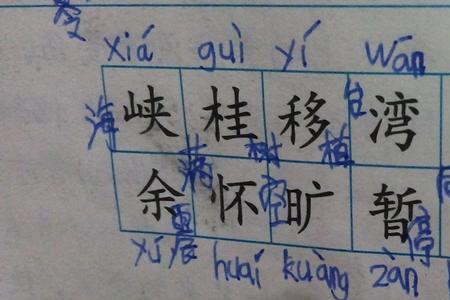 xiá guì yí wān
海峡 桂树 移植 台湾
余震 满怀 空旷 暂停
yú huái kuàng zàn